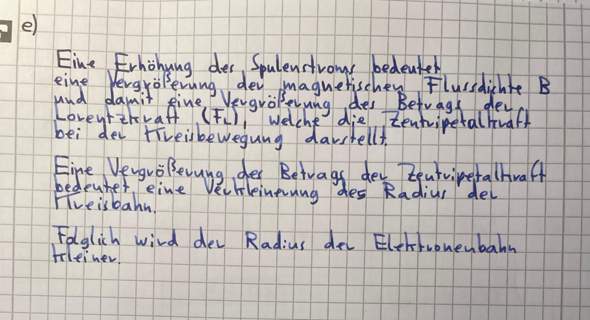 e)
Eine Erhöhung des Spulenstroms bedeutet
eine Vergrößerung der magnetischen Flussdichte B
und damit eine Vergrößerung des Betrags der
Lorentzkraft (FL), welche die Zentripetalkraft
bei der Kreisbewegung darstellt.
Eine Vergrößerung des Betrags der Zentripetalkraft
bedeutet eine Verkleinerung des Radius der
Kreisbahn.
Folglich wird der Radius der Elektronenbahn
kleiner.